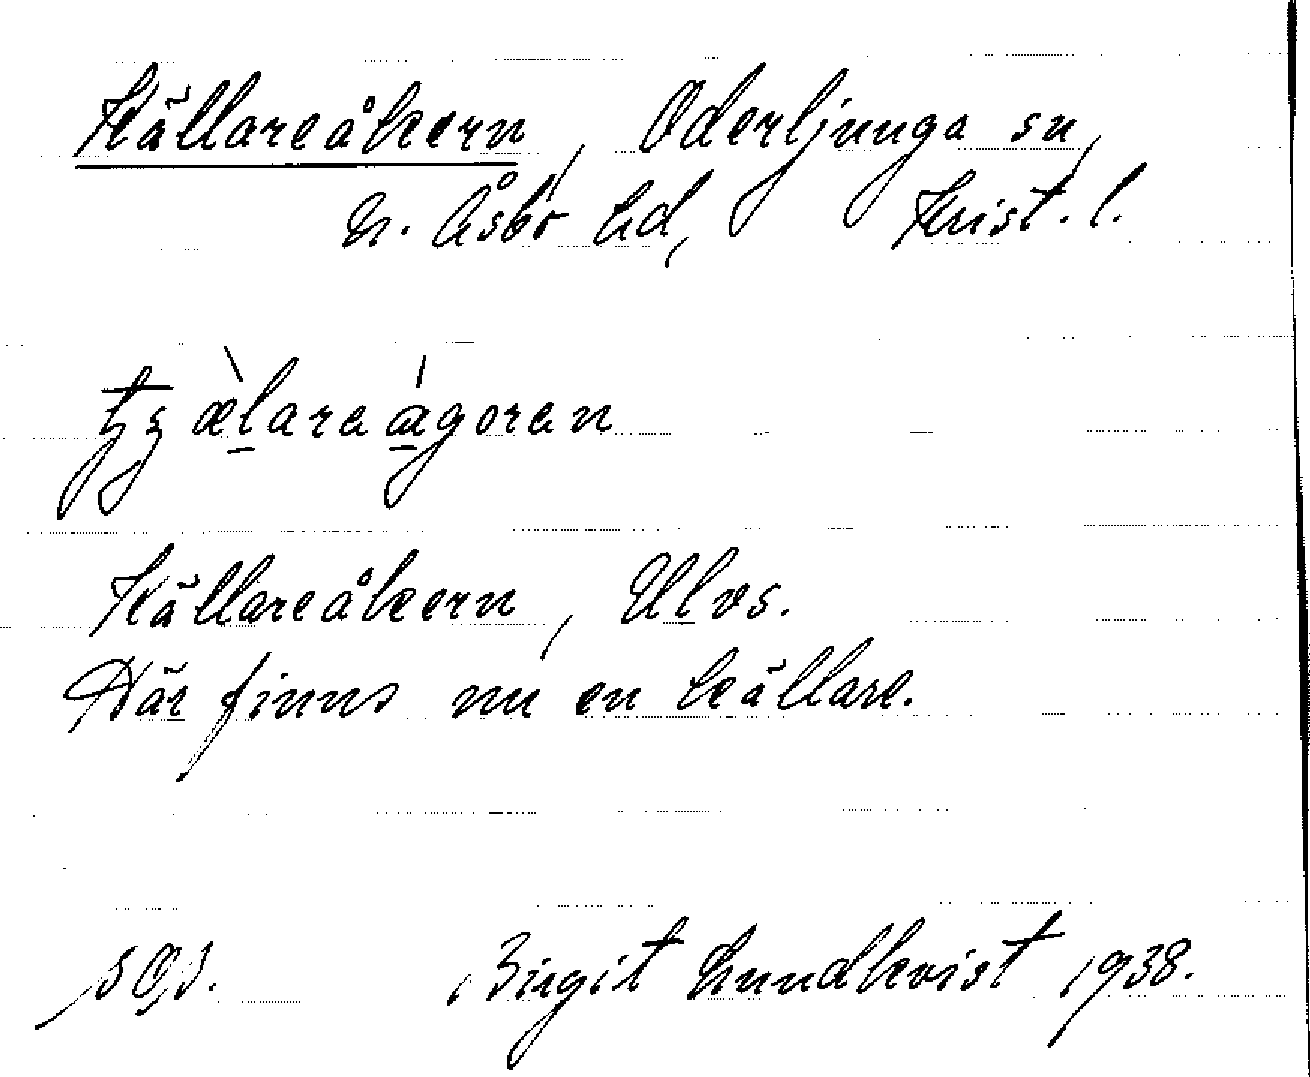 Källareåkern, Oderljunga sn,
N. Åsbo hd, Krist. l.
Källareåkern, Ulvs.
Här finns nu en källare.
Birgit Lundkvist 1938.